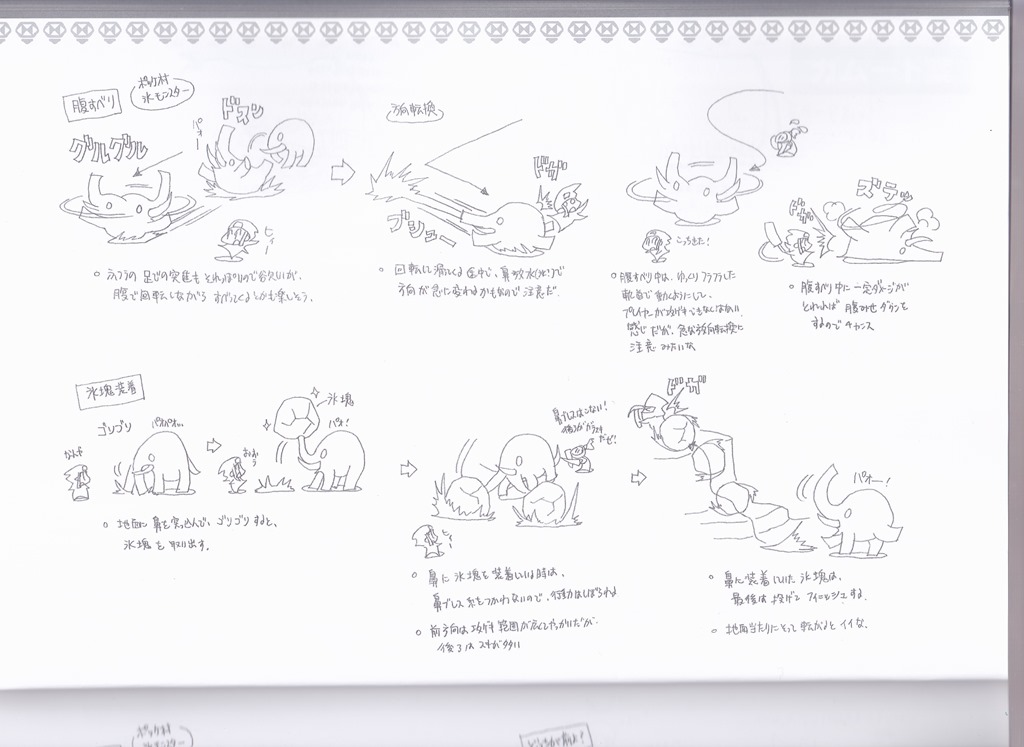 腹すべり
ポッケ村
氷モンスター
グルグル
パオー
ドスン
ヒィー
方向転換
ドガ
ブシュー
こっちきた!
ドガ
ズテッ
回転して滑ってくる途中で、鼻放水(ブレス)で
方向が急に変わるかもなので注意だ。
腹で回転しながら すべってくるとかも楽しそう。
腹すべり中は、ゆっくりフラフラした
軌道で動くようにして、
プレイヤーが攻げきできなくはない
感じだが、急な方向転換に
注意 みたいな
腹すべり中に一定ダメージが
とれれば 腹みせ ダウンを
するので チャンス
氷塊装着
ゴリゴリ
パオパオ…
氷塊
パオ!
地面に 鼻を突っ込んで、ゴリゴリすると、
氷塊を 取り出す。
鼻ブレスはこない!
だぜ!
ヒィー
鼻に 氷塊を 装着している時は、
鼻ブレス系をつかわないので、行動はしぼられる
前方向は 攻げき範囲が広くてやっかいだが
後ろは スキが
ドガ
パオー!
鼻に 装着していた 氷塊は、
最後は 投げて フィニッシュする。
地面当たりにそって 転がると イイな。
ポッケ村
氷モンスター